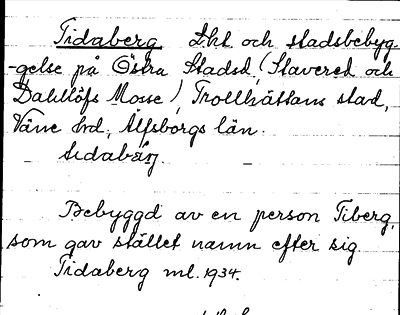 Tidaberg Lht och stadsbebyg
-gelse på Östra Stadsd. (Stavered och
Dahllöfs Mosse), Trollhättans stad,
Väne hd, Älfsborgs län.
Bebyggd av en person Tiberg,
som gav stället namn efter sig.
Tidaberg ml. 1934.